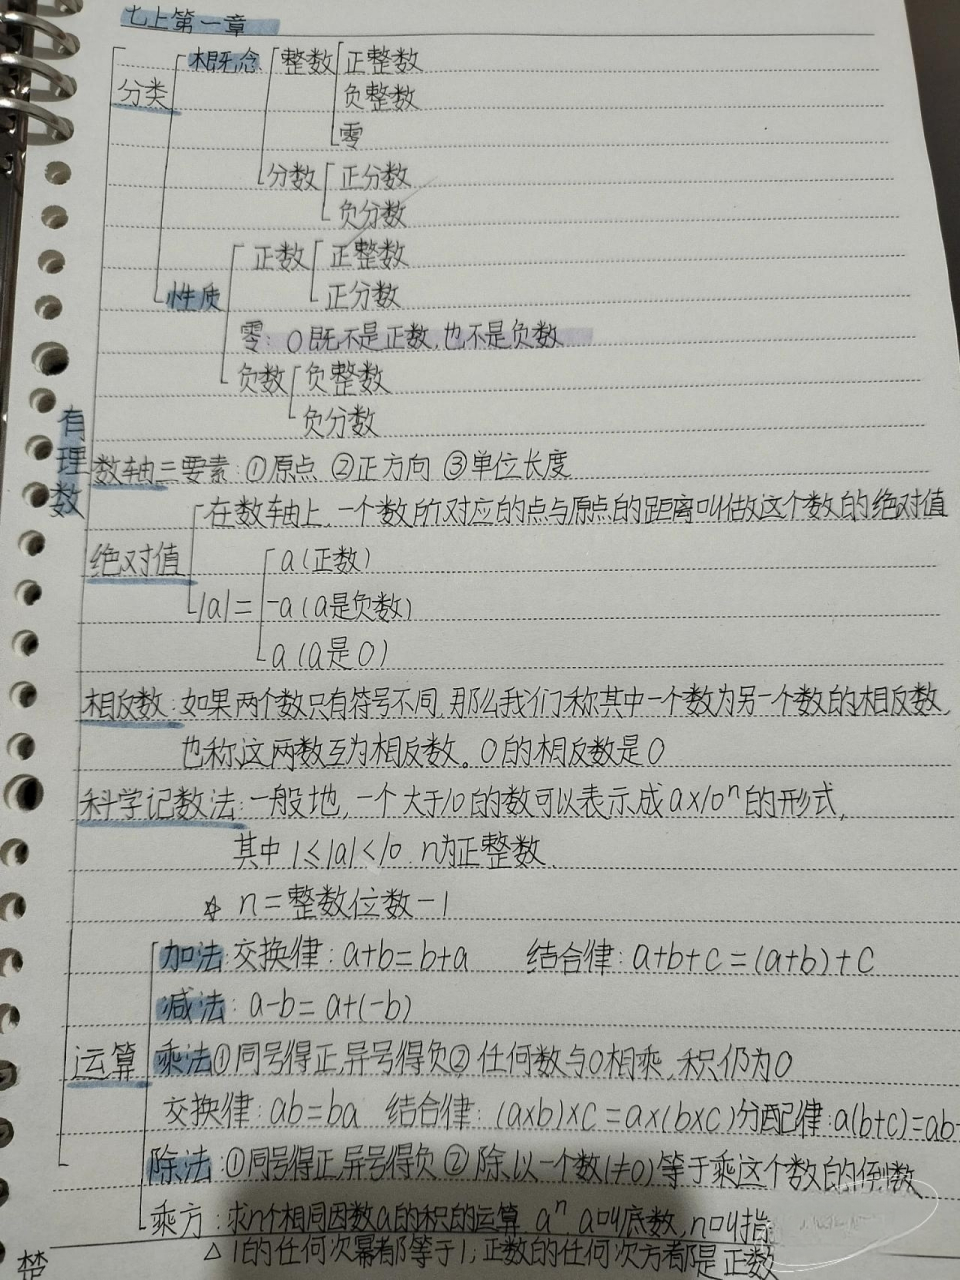 七上第一章
概念 整数 正整数
分类 负整数
零
分数 正分数
负分数
正数 正整数
性质 正分数
零：0既不是正数,也不是负数
负数 负整数
负分数
有理数
数轴三要素：①原点 ②正方向 ③单位长度
在数轴上,一个数所对应的点与原点的距离叫做这个数的绝对值
绝对值 a(正数)
|a|= -a(a是负数)
a(a是0)
相反数：如果两个数只有符号不同,那么我们称其中一个数为另一个数的相反数,
也称这两数互为相反数。0的相反数是0
科学记数法：一般地,一个大于10的数可以表示成a×10ⁿ的形式,
其中1≤|a|<10 n为正整数.
☆ n=整数位数-1
加法：交换律：a+b=b+a 结合律：a+b+c=(a+b)+c
减法：a-b=a+(-b)
运算 乘法①同号得正,异号得负② 任何数与0相乘,积仍为0
交换律：ab=ba 结合律：(a×b)×c=a×(b×c)分配律：a(b+c)=ab+
除法：①同号得正,异号得负 ② 除以一个数(≠0)等于乘这个数的倒数
乘方：求n个相同因数a的积的运算 aⁿ a叫底数,n叫指
△1的任何次幂都等于1;正数的任何次方都是正数
楚